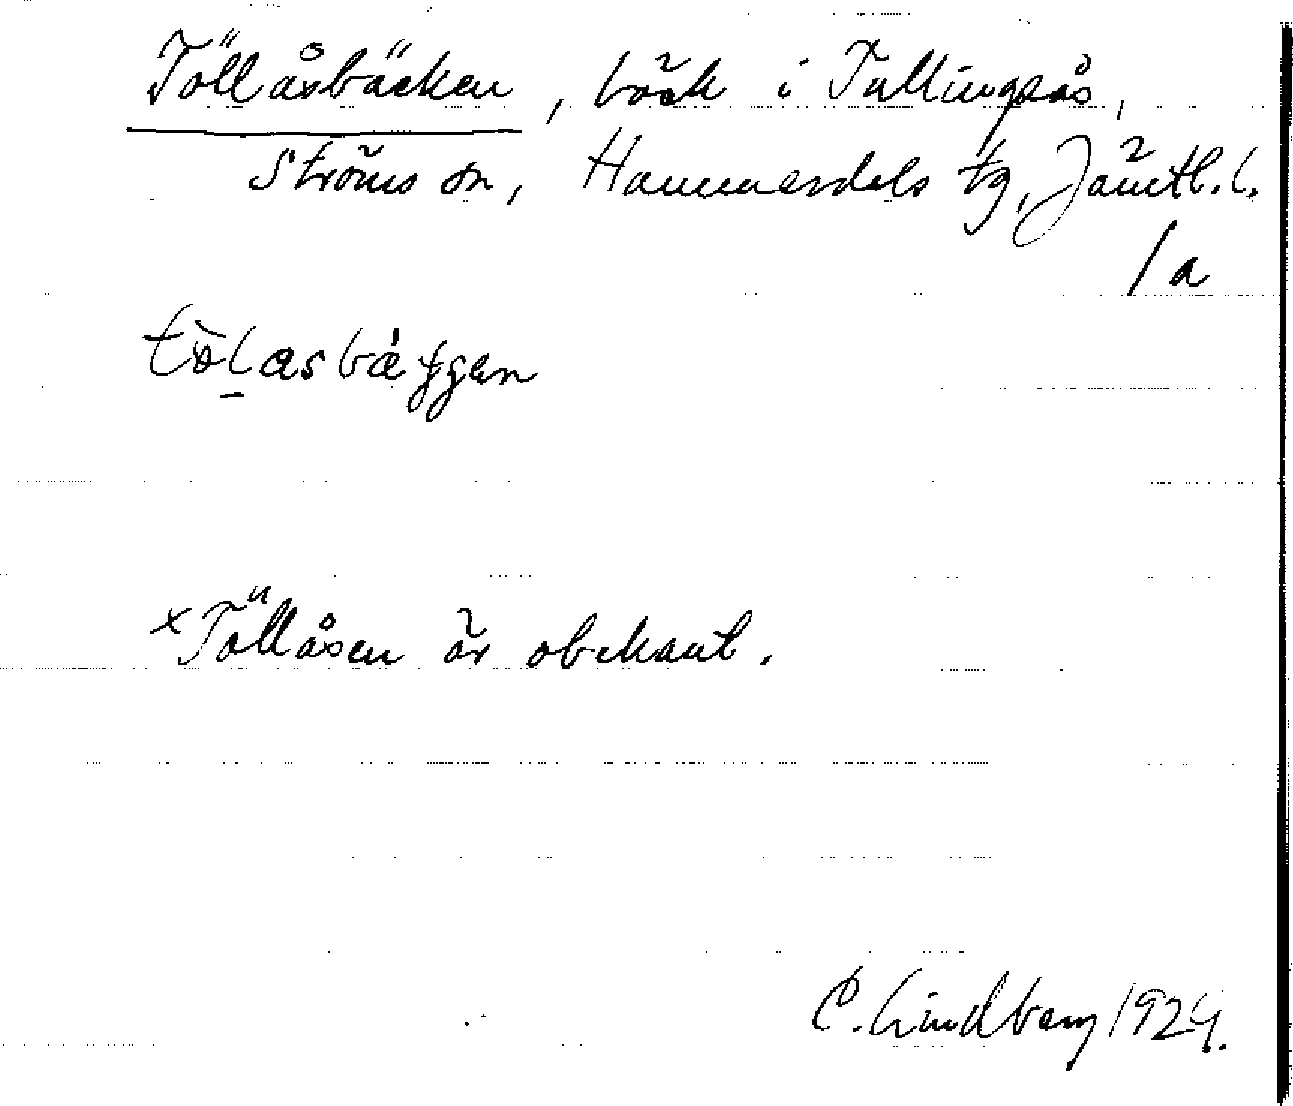 Töllåsbäcken, bäck i Tullingsås,
Ströms sn, Hammerdals tg, Jämtl. l.
/a
tòlasbǽɟɟen
×Töllåsen är obekant.
C. Lindberg 1924.